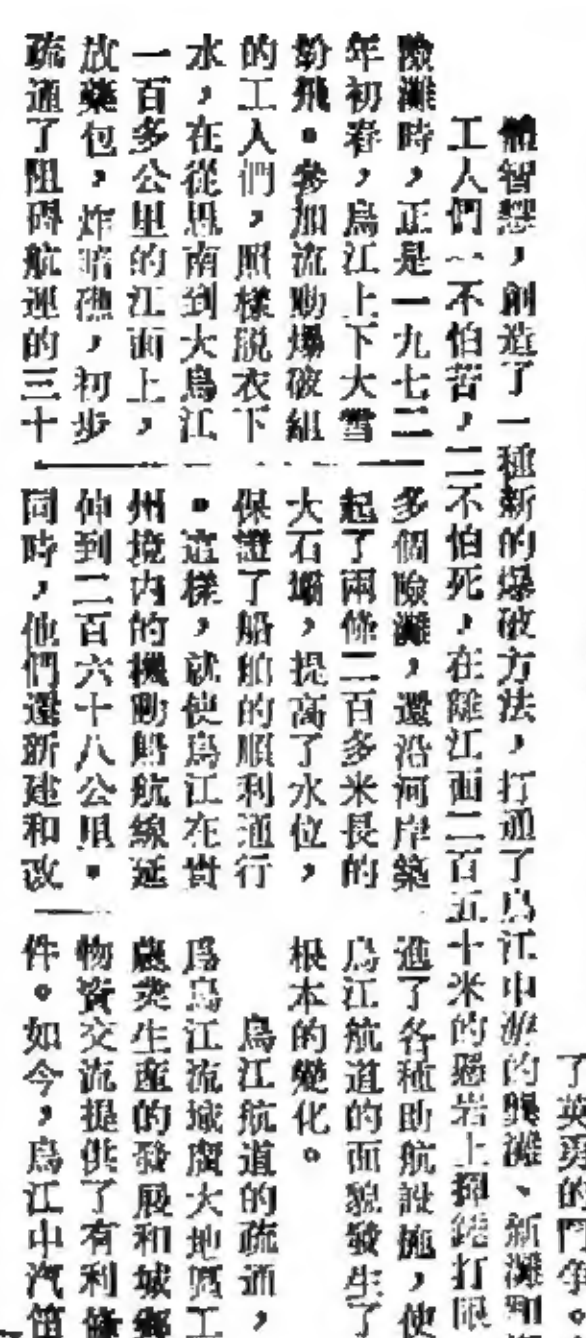 了英勇的鬥爭。
體智慧，創造了一種新的爆破方法，打通了烏江中游的龔灘、新灘和
工人們一不怕苦，二不怕死，在離江面二百五十米的懸岩上掄錘打眼
險灘時，正是一九七二
年初春，烏江上下大雪
紛飛。參加流動爆破組
的工人們，照樣脱衣下
水，在從思南到大烏江
一百多公里的江面上，
放藥包，炸暗礁，初步
疏通了阻碍航運的三十
多個險灘，還沿河岸築
起了兩條二百多米長的
大石壩，提高了水位，
保證了船舶的順利通行
。這樣，就使烏江在貴
州境内的機動船航線延
伸到二百六十八公里。
同時，他們還新建和改
進了各種助航設施，使
烏江航道的面貌發生了
根本的變化。
烏江航道的疏通，
爲烏江流域廣大地區工
農業生産的發展和城鄉
物資交流提供了有利條
件。如今，烏江中汽笛